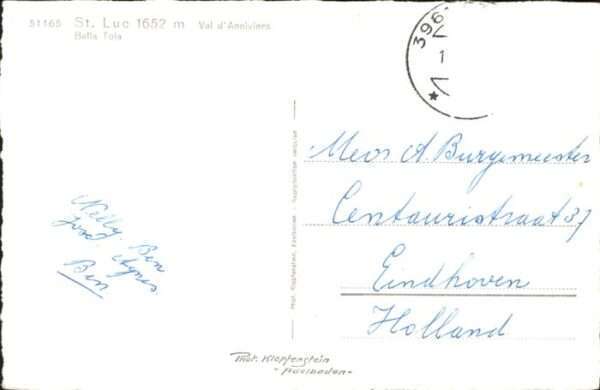 51165 St. Luc 1652 m Val d'Anniviers
Bella Tola
396
1
Mevr A. Burgemeester
Centauristraat 37
Eindhoven
Holland
Nelly. Ben
José. Agnes.
Ben
Phot. Klopfenstein, Adelboden - Reproduction interdite
Phot. Klopfenstein
- Adelboden -